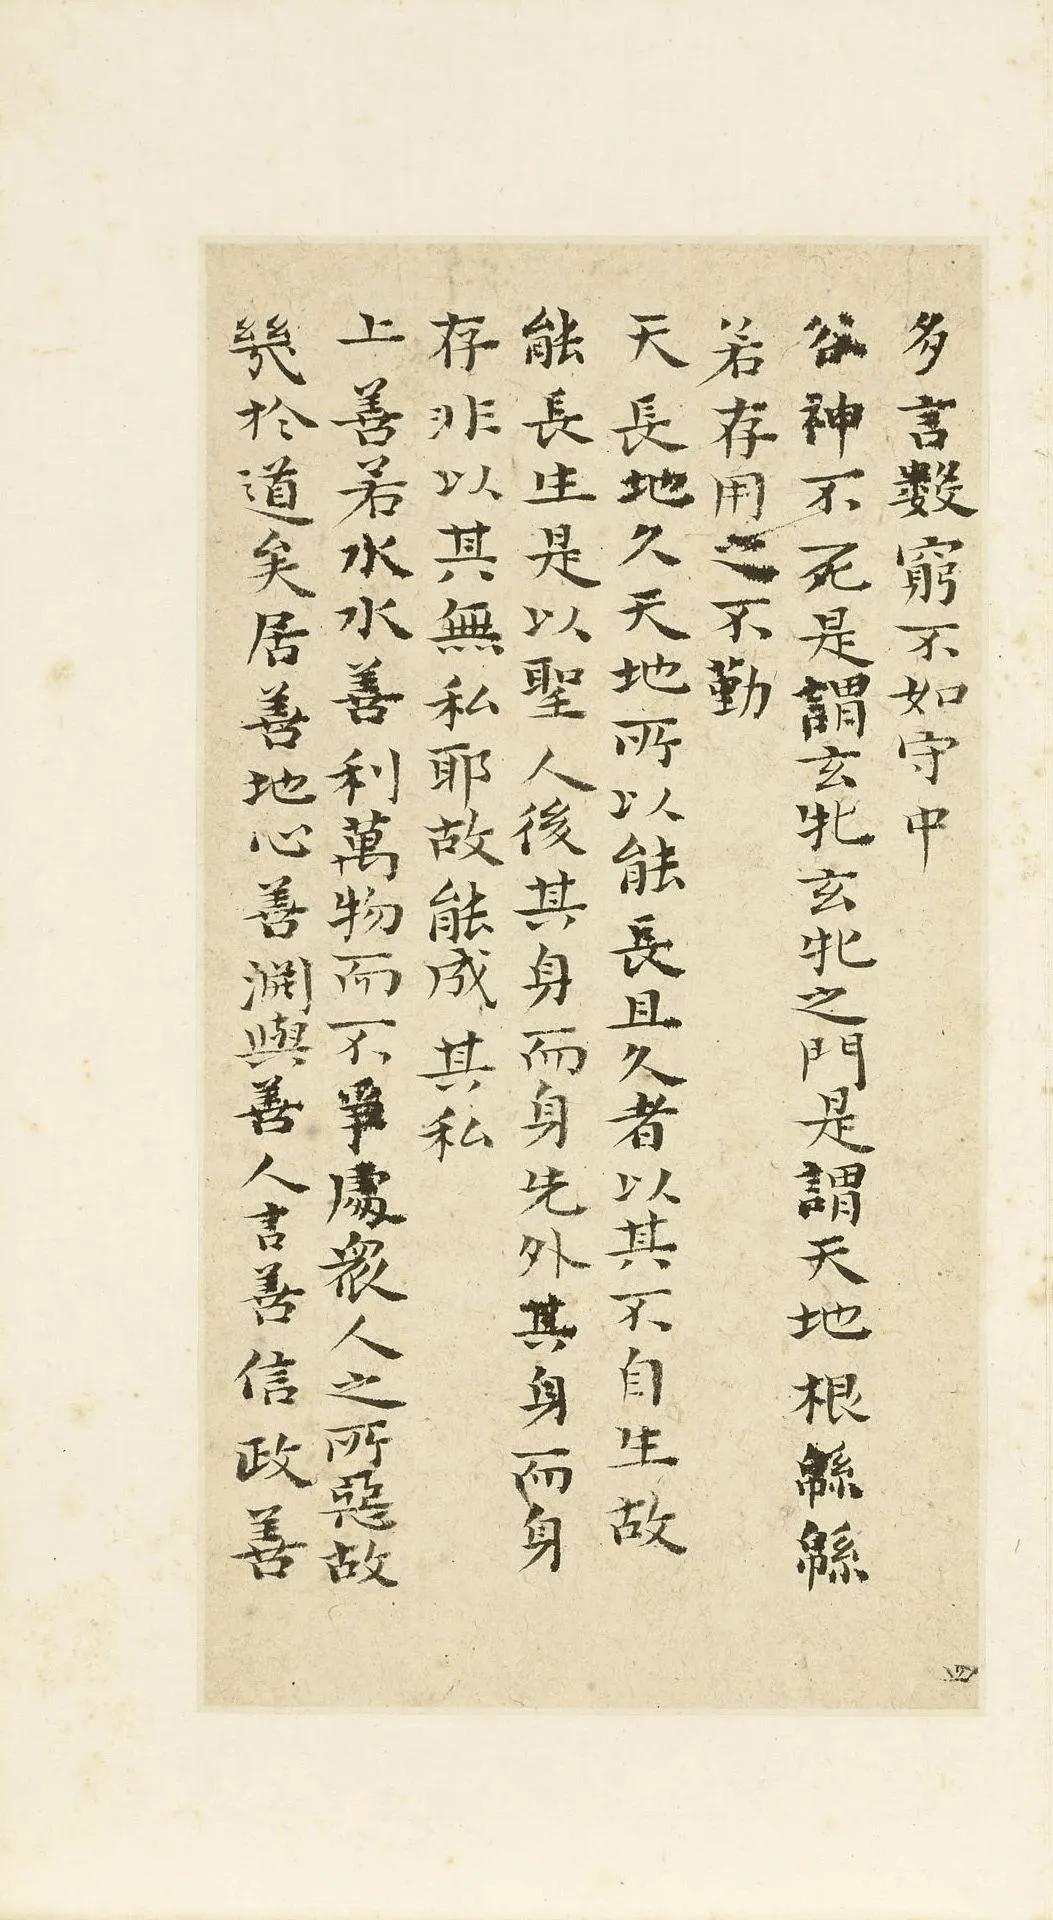 多言數窮不如守中
谷神不死是謂玄牝玄牝之門是謂天地根緜緜
若存用之不勤
天長地久天地所以能長且久者以其不自生故
能長生是以聖人後其身而身先外其身而身
存非以其無私耶故能成其私
上善若水水善利萬物而不爭處衆人之所惡故
幾於道矣居善地心善淵與善人言善信政善